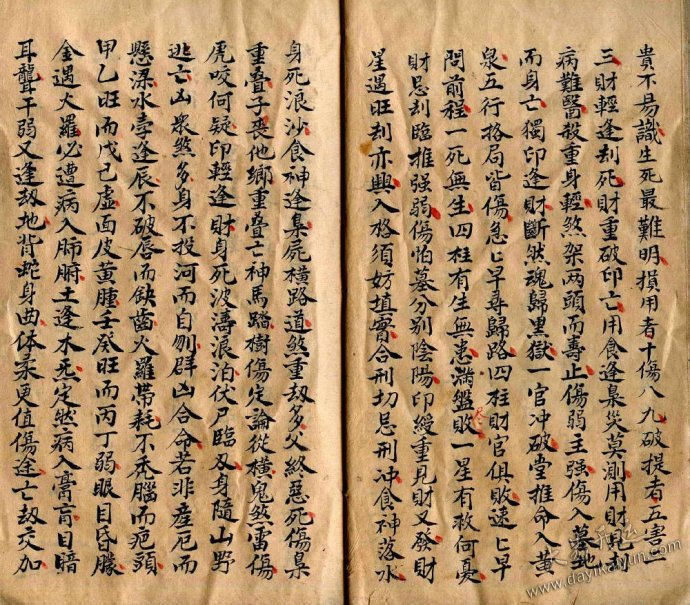 貴不易識生死最難明損用者十傷八九破提者五害二
三財輕逢刦死財重破印亡用食逢梟災莫測用財見刦
病難醫殺重身輕煞架两頭而壽止傷弱主强傷入墓地
而身亡獨印逢財斷然魂歸黑獄一官冲破堂推命入黃
泉五行格局皆傷急上早尋歸路四柱財官俱敗速上早
問前程一死無生四柱有生無患滿盤敗一星有救何憂
財忌刦臨推强弱傷怕墓分别陰陽印綬重見財又發財
星遇旺刦亦興入格須妨填實合刑切忌刑冲食神落水
身死浪沙食神逢梟屍横路道煞重刼多父終惡死傷梟
重叠子喪他鄉重叠亡神馬踏樹傷定論從橫鬼煞雷傷
虎咬何疑印輕逢財身死波濤浪泊伏尸臨及身隨山野
逃亡凶衆煞多身不投河而自刎群凶合命若非産厄而
懸梁水孛逢辰不破唇而缺齒火羅帶耗不禿腦而疤頭
甲乙旺而戊己虚面皮黃腫壬癸旺而丙丁弱眼目昏朦
金遇火羅必遭病入肺腑土逢木死定然病入膏肓目暗
耳聾干弱又逢刼地背駝身曲体柔更值傷途亡刼交加
www.dayikaiyun.com